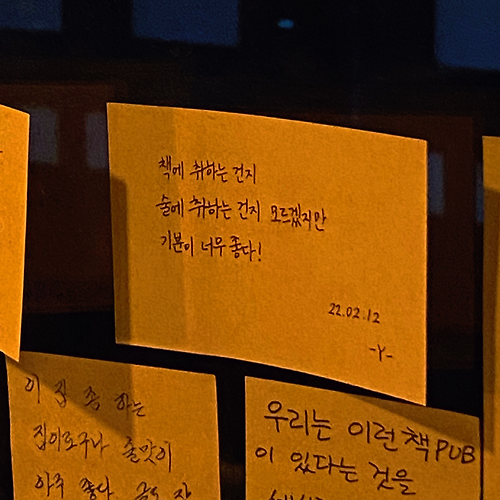 책에 취하는 건지
술에 취하는 건지 모르겠지만
기분이 너무 좋다!
22.02.12
-Y-
이 집 좀 하는
집이로구나 술맛이
아주 좋다
우리는 이런 책PUB
이 있다는 것을